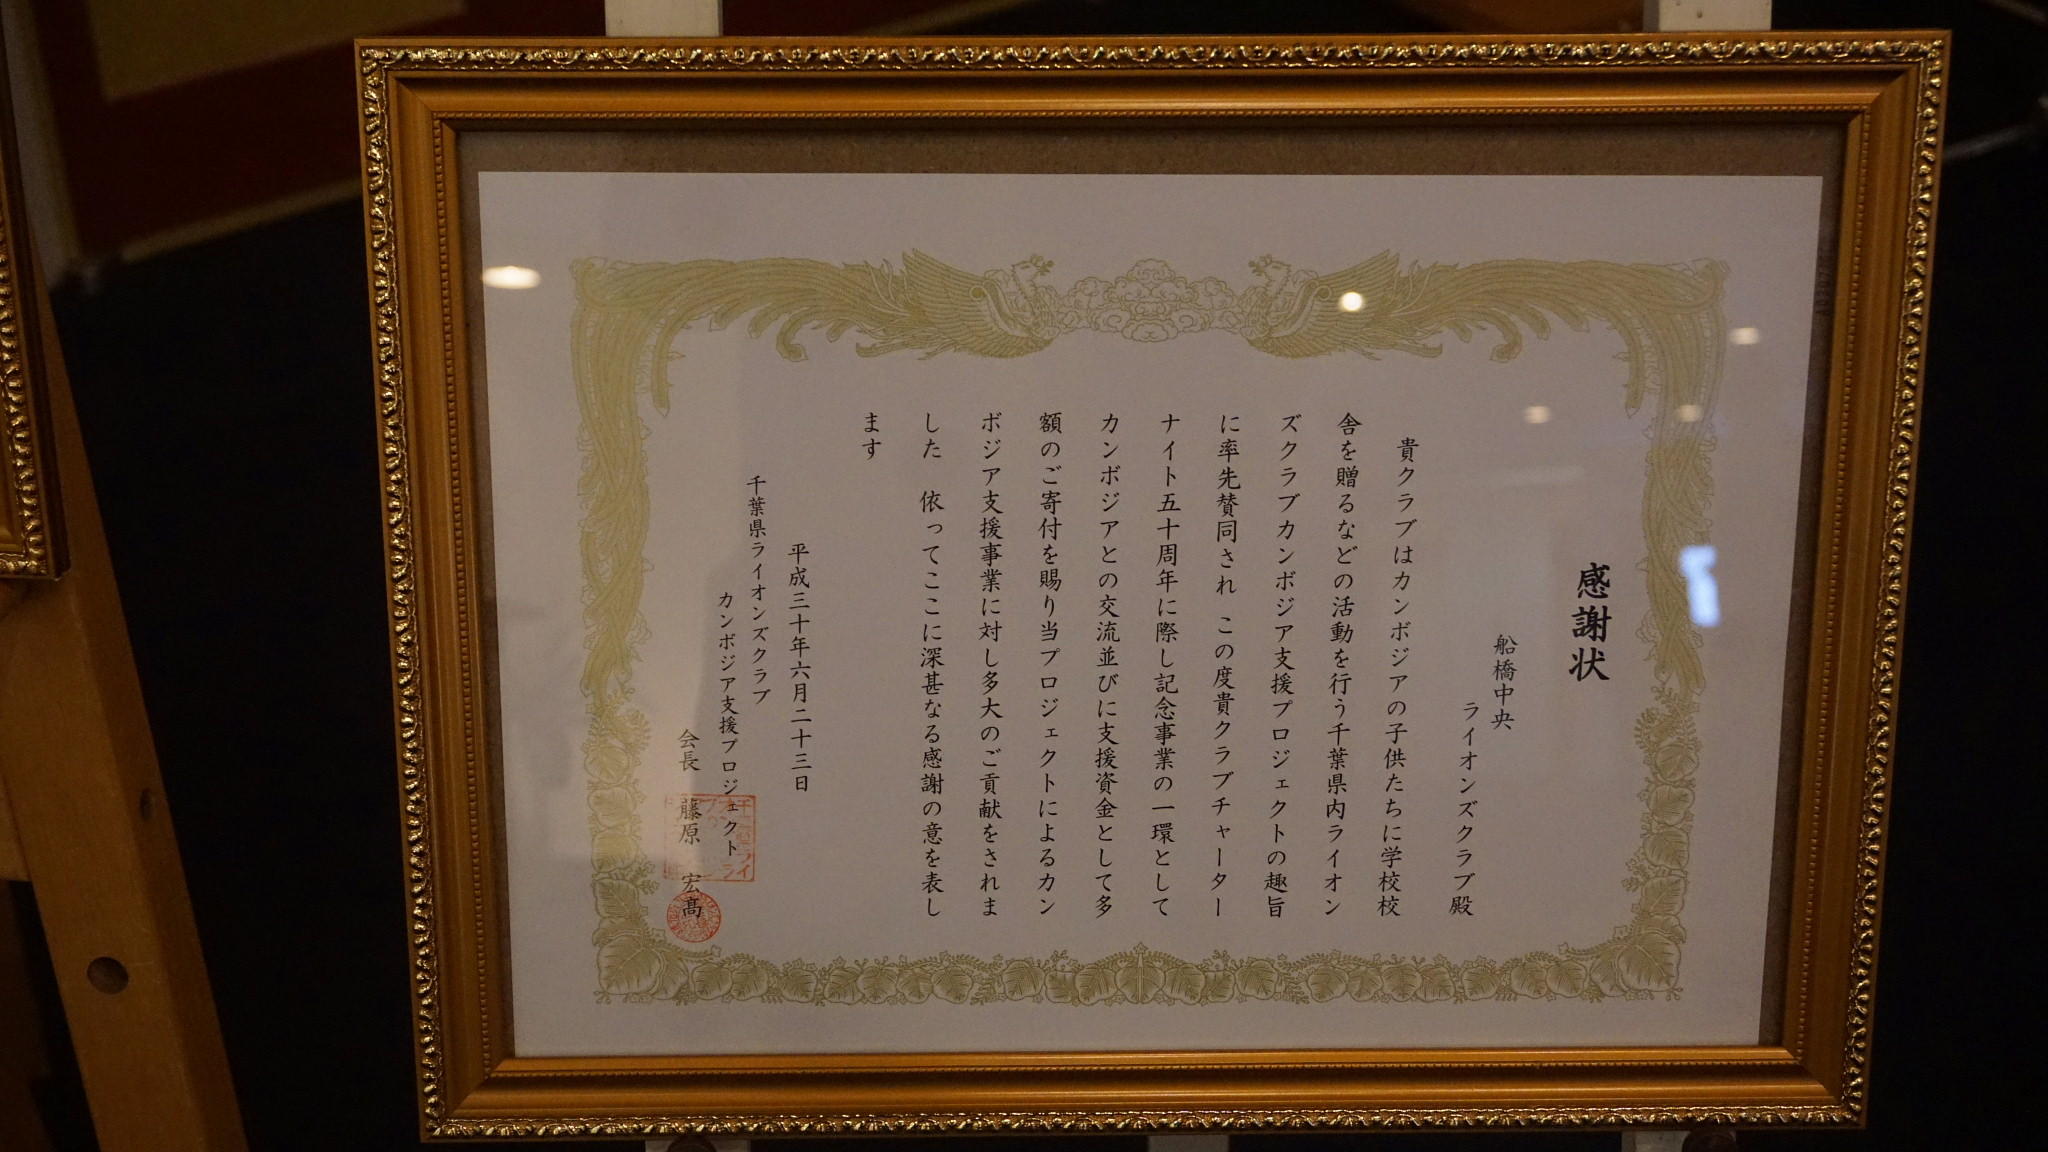 感謝状
船橋中央
ライオンズクラブ殿
貴クラブはカンボジアの子供たちに学校校
舎を贈るなどの活動を行う千葉県内ライオン
ズクラブカンボジア支援プロジェクトの趣旨
に率先賛同され この度貴クラブチャーター
ナイト五十周年に際し記念事業の一環として
カンボジアとの交流並びに支援資金として多
額のご寄付を賜り当プロジェクトによるカン
ボジア支援事業に対し多大のご貢献をされま
した 依ってここに深甚なる感謝の意を表し
ます
平成三十年六月二十三日
千葉県ライオンズクラブ
カンボジア支援プロジェクト
会長 藤原 宏高